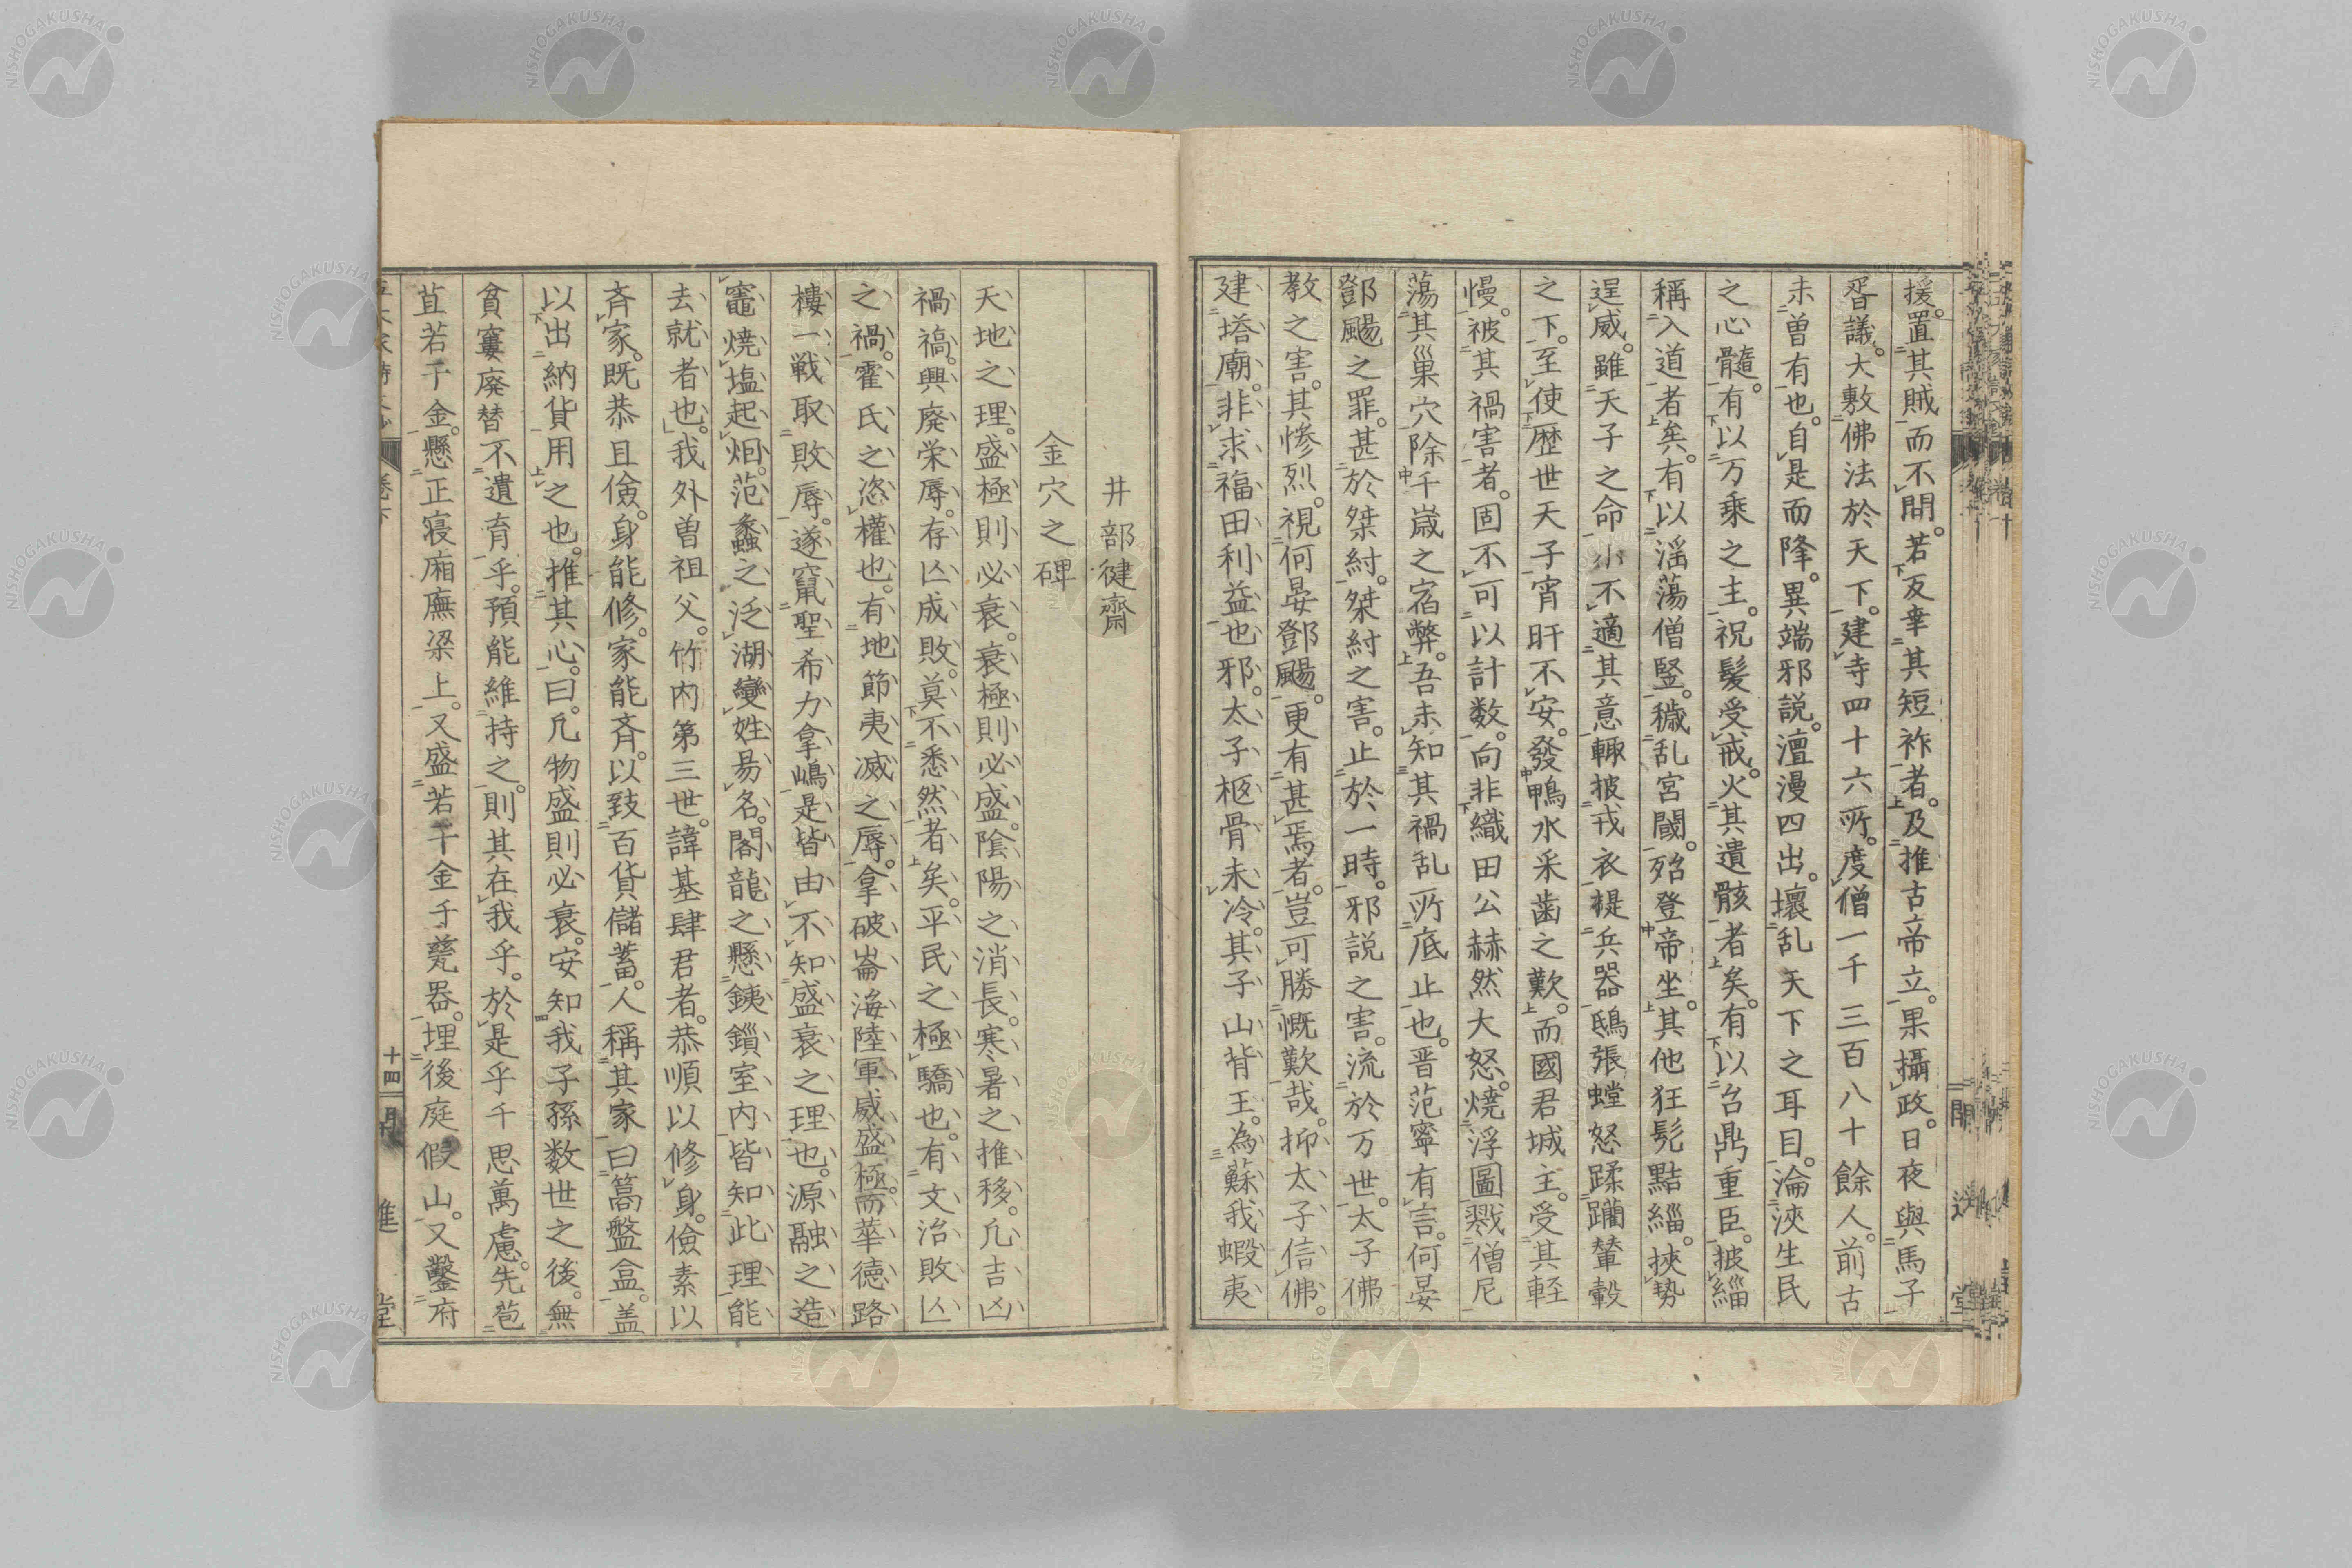 援。置其賊而不問。若反幸其短祚者。及推古帝立。果攝政。日夜與馬子
胥議。大敷佛法於天下。建寺四十六所。度僧一千三百八十餘人。前古
未曽有也。自是而降。異端邪説。澶漫四出。壞乱天下之耳目。淪浹生民
之心髓。有以万乗之主。祝髮受戒。火其遺骸者矣。有以台鼎重臣。披緇
稱入道者矣。有以滛蕩僧竪。穢乱宮閫。殆登帝坐。其他狂髡黠緇。挾势
逞威。雖天子之命小不適其意輙披戎衣褆兵器鴟張螳怒蹂躪輦轂
之下。至使歴世天子宵旰不安。發鴨水采歯之歎。而國君城主。受其軽
慢。被其禍害者。固不可以計数。向非織田公赫然大怒。焼浮圖戮僧尼
蕩其巢穴除千嵗之宿弊。吾未知其禍乱所底止也。晋范寧有言。何晏
鄧颺之罪。甚於桀紂。桀紂之害。止於一時。邪説之害。流於万世。太子佛
教之害。其惨烈。視何晏鄧颺。更有甚焉者。豈可勝慨歎哉。抑太子信佛。
建塔廟。非求福田利益也邪。太子柩骨未冷。其子山背王。為蘇我蝦夷
井部健齋
金穴之碑
天地之理。盛極則必衰。衰極則必盛。陰陽之消長。寒暑之推移。凢吉凶
禍福。興廃栄辱。存亾成敗。莫不悉然者矣。平民之極驕也。有文治敗亾
之禍。霍氏之恣權也。有地節夷滅之辱。拿破崙海陸軍威盛極。而華徳路
樓一戦取敗辱。遂竄聖希力拿嶋是皆由不知盛衰之理也。源融之造
竈焼塩起烟。范蠡之泛湖變姓易名。閣龍之懸銕鎖室内皆知此理能
去就者也。我外曽祖父。竹内第三世。諱基肆君者。恭順以修身。儉素以
斉家。既恭且儉。身能修。家能斉。以致百貨儲蓄。人稱其家曰篙盤盒。盖
以出納貨用之也。推其心。曰。凢物盛則必衰。安知我子孫数世之後。無
貧窶廃替不遺育乎。預能維持之。則其在我乎。於是乎千思萬慮。先苞
苴若千金。懸正寝廂廡梁上。又盛若千金于甕器。埋後庭假山。又鑿府
卷下
十四